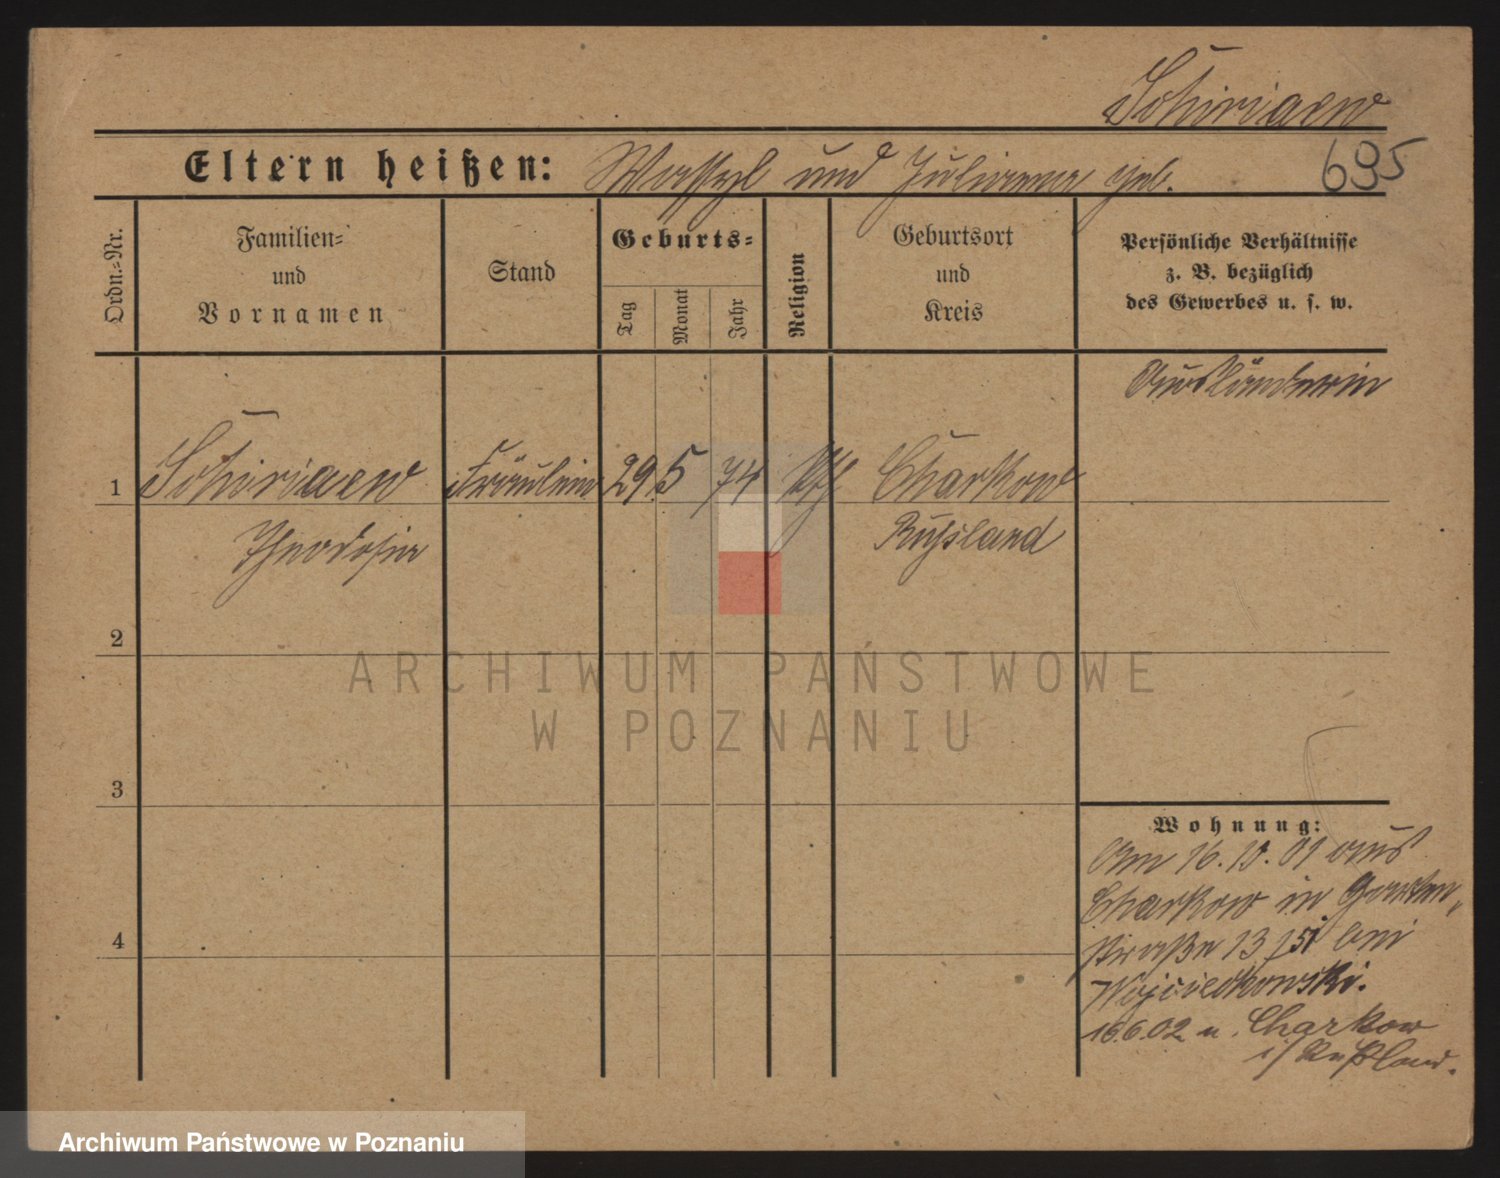 Schiriaew
Eltern heißen: Wassyl und Juliana geb.
695
Ordn.-Nr.
Familien-
und
Vornamen
Stand
Geburts-
Tag
Monat
Jahr
Religion
Geburtsort
und
Kreis
Persönliche Verhältnisse
z. B. bezüglich
des Gewerbes u. s. w.
Ausländerin
1 Schiriaew Fräulein 29 5 74 Charkow
Theodosia Russland
2
3
4
Wohnung:
Am 16.10.01 aus
Charkow in Garten-
straße 13 bei
Wojciechowski.
16.6.02 n. Charkow
i/ Rußland.
ARCHIWUM PAŃSTWOWE
W POZNANIU
Archiwum Państwowe w Poznaniu